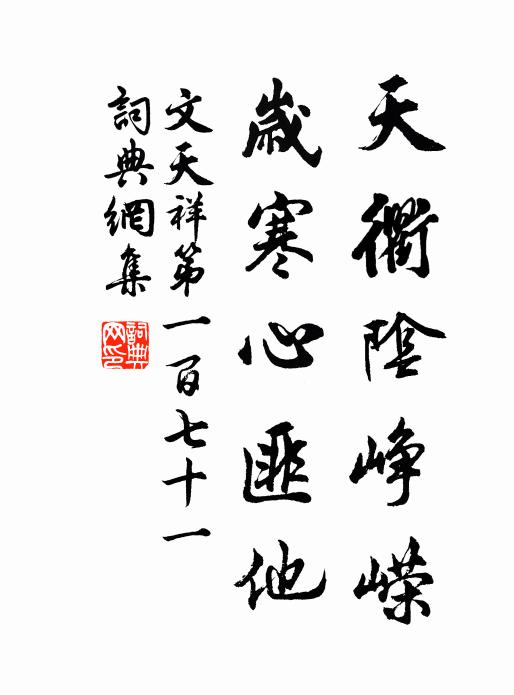 天衢陰峥嵘
歲寒心匪他
文天祥第一百七十一
詞典網集
詞典網印